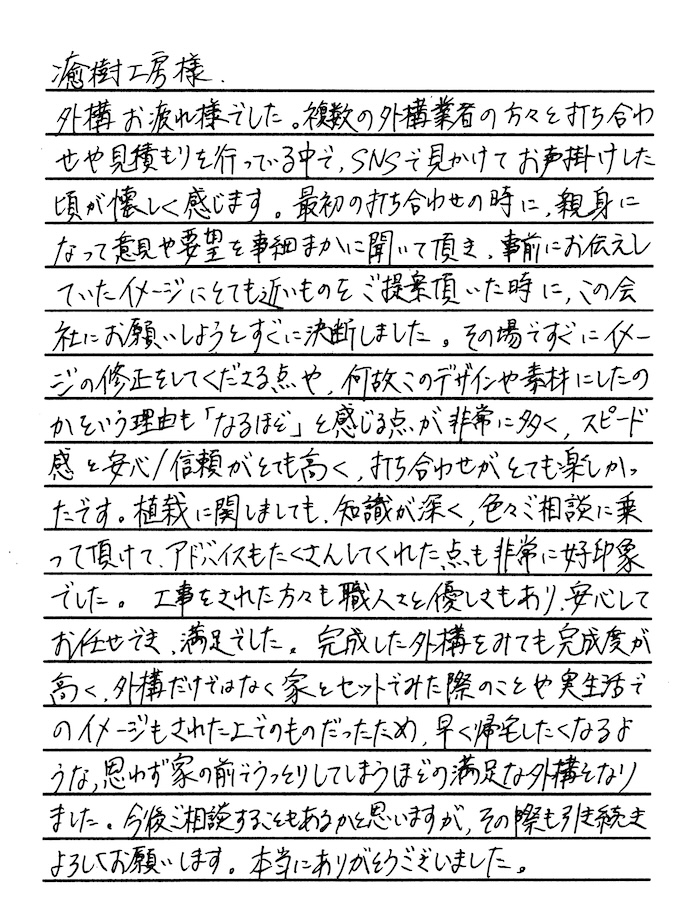 癒樹工房様.
外構お疲れ様でした。複数の外構業者の方々と打ち合わ
せや見積もりを行っている中で、SNSで見かけてお声掛けした
頃が懐しく感じます。最初の打ち合わせの時に、親身に
なって意見や要望を事細まかに聞いて頂き、事前にお伝えし
ていたイメージにとても近いものをご提案頂いた時に、この会
社にお願いしようとすぐに決断しました。その場ですぐにイメー
ジの修正をしてくださる点や、何故このデザインや素材にしたの
かという理由も「なるほど」と感じる点が非常に多く、スピード
感と安心/信頼がとても高く、打ち合わせがとても楽しかっ
たです。植栽に関しましても、知識が深く、色々ご相談に乗
って頂けて、アドバイスもたくさんしてくれた点も非常に好印象
でした。 工事をされた方々も職人さと優しさもあり、安心して
お任せでき、満足でした。 完成した外構をみても完成度が
高く、外構だけではなく家とセットでみた際のことや実生活で
のイメージもされた上でのものだったため、早く帰宅したくなるよ
うな、思わず家の前でうっとりしてしまうほどの満足な外構となり
ました。今後ご相談することもあるかと思いますが、その際も引き続き
よろしくお願いします。本当にありがとうございました。